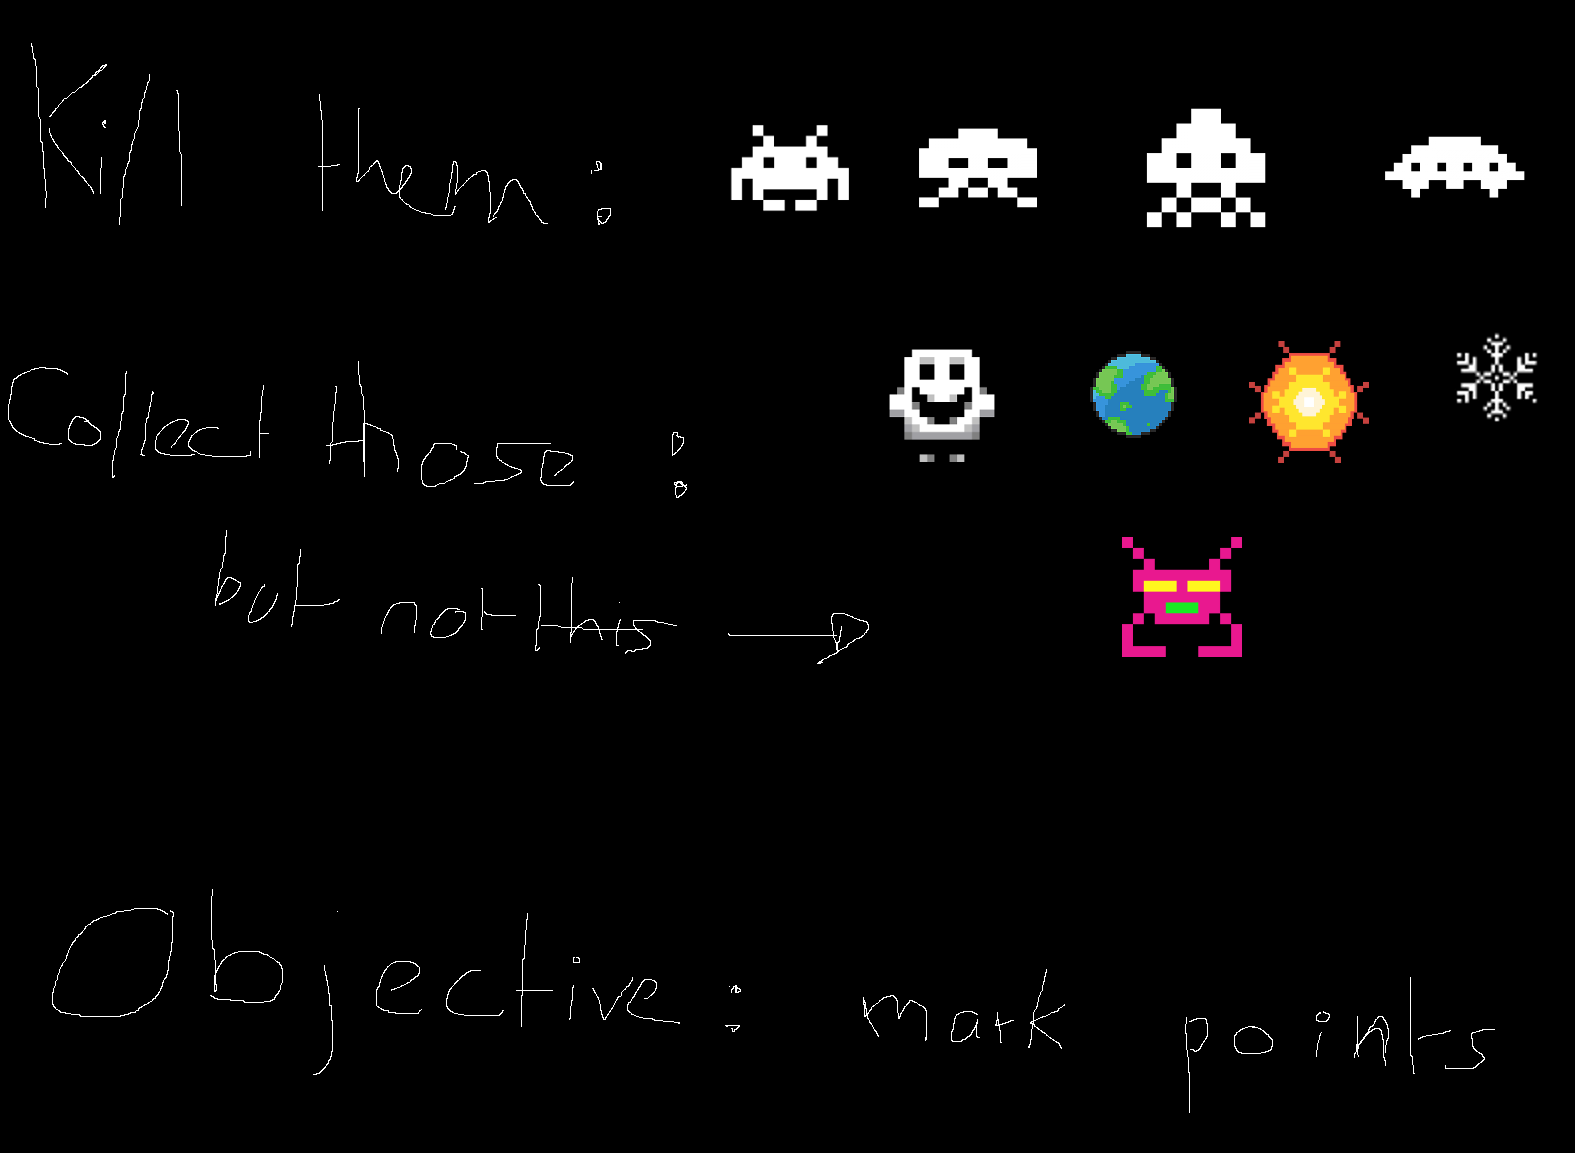 Kill them:
Collect those:
but not this
Objective: mark points